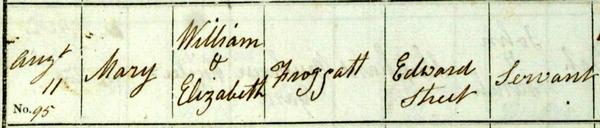 Augt
11
No. 95
Mary
William
&
Elizabeth
Froggatt
Edward
Street
Servant